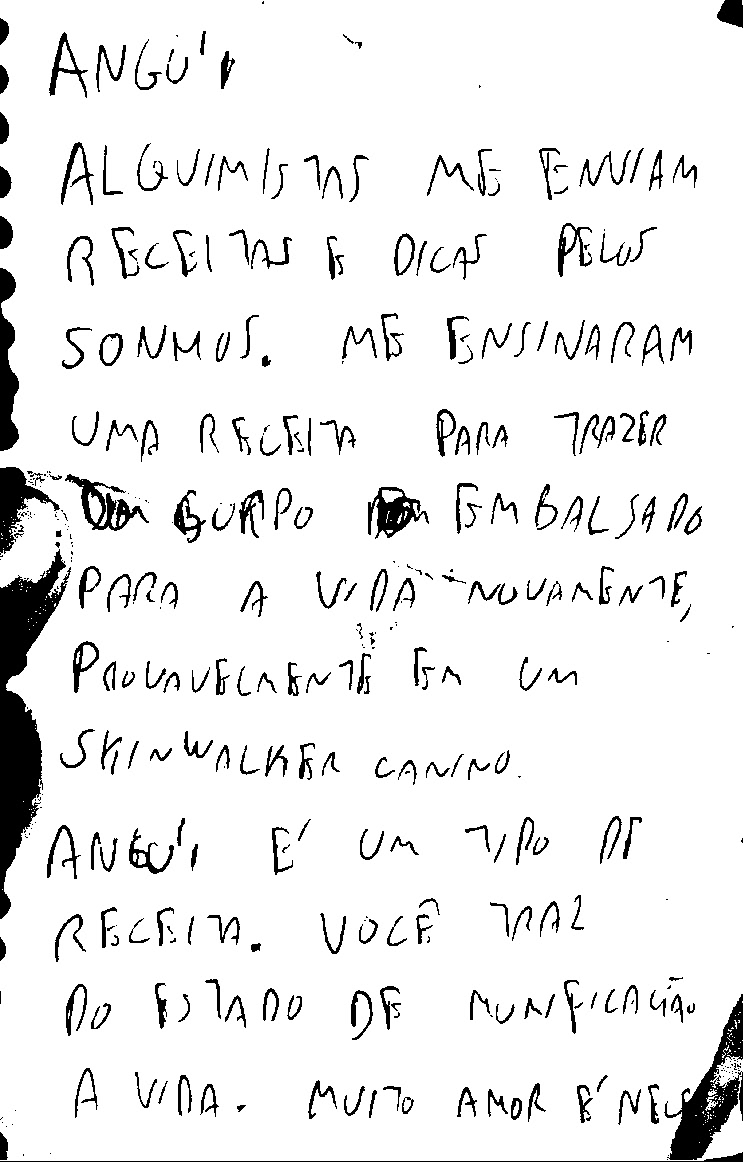 ANGÚI
ALQUIMISTAS ME ENVIAM
RECEITAS E DICAS PELOS
SONHOS. ME ENSINARAM
UMA RECEITA PARA TRAZER
UM CORPO EMBALSADO
PARA A VIDA NOVAMENTE,
PROVAVELMENTE EM UM
SKINWALKER CANINO.
ANGÚI É UM TIPO DE
RECEITA. VOCÊ TRAZ
DO ESTADO DE MUNIFICAÇÃO
A VIDA. MUITO AMOR É